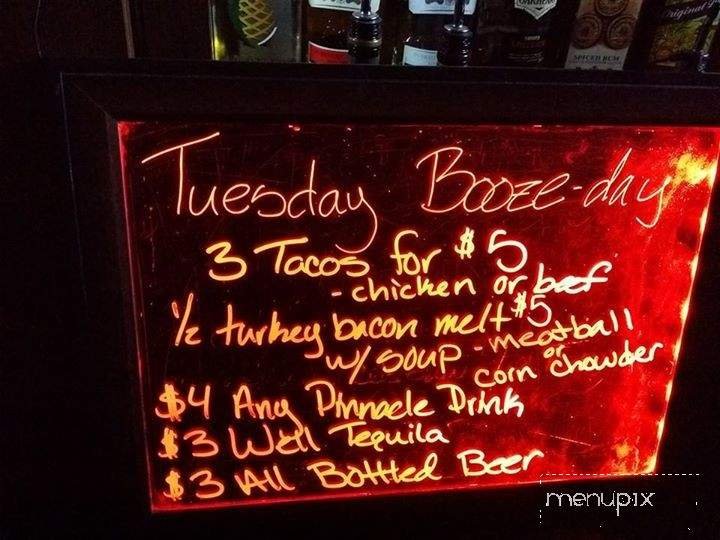 SPICED RUM
Original
Tuesday Booze-day
3 Tacos for $5
- chicken or beef
1/2 turkey bacon melt $5
w/ soup - meatball
or
corn chowder
$4 Any Pinnacle Drink
$3 Well Tequila
$3 All Bottled Beer
menupix